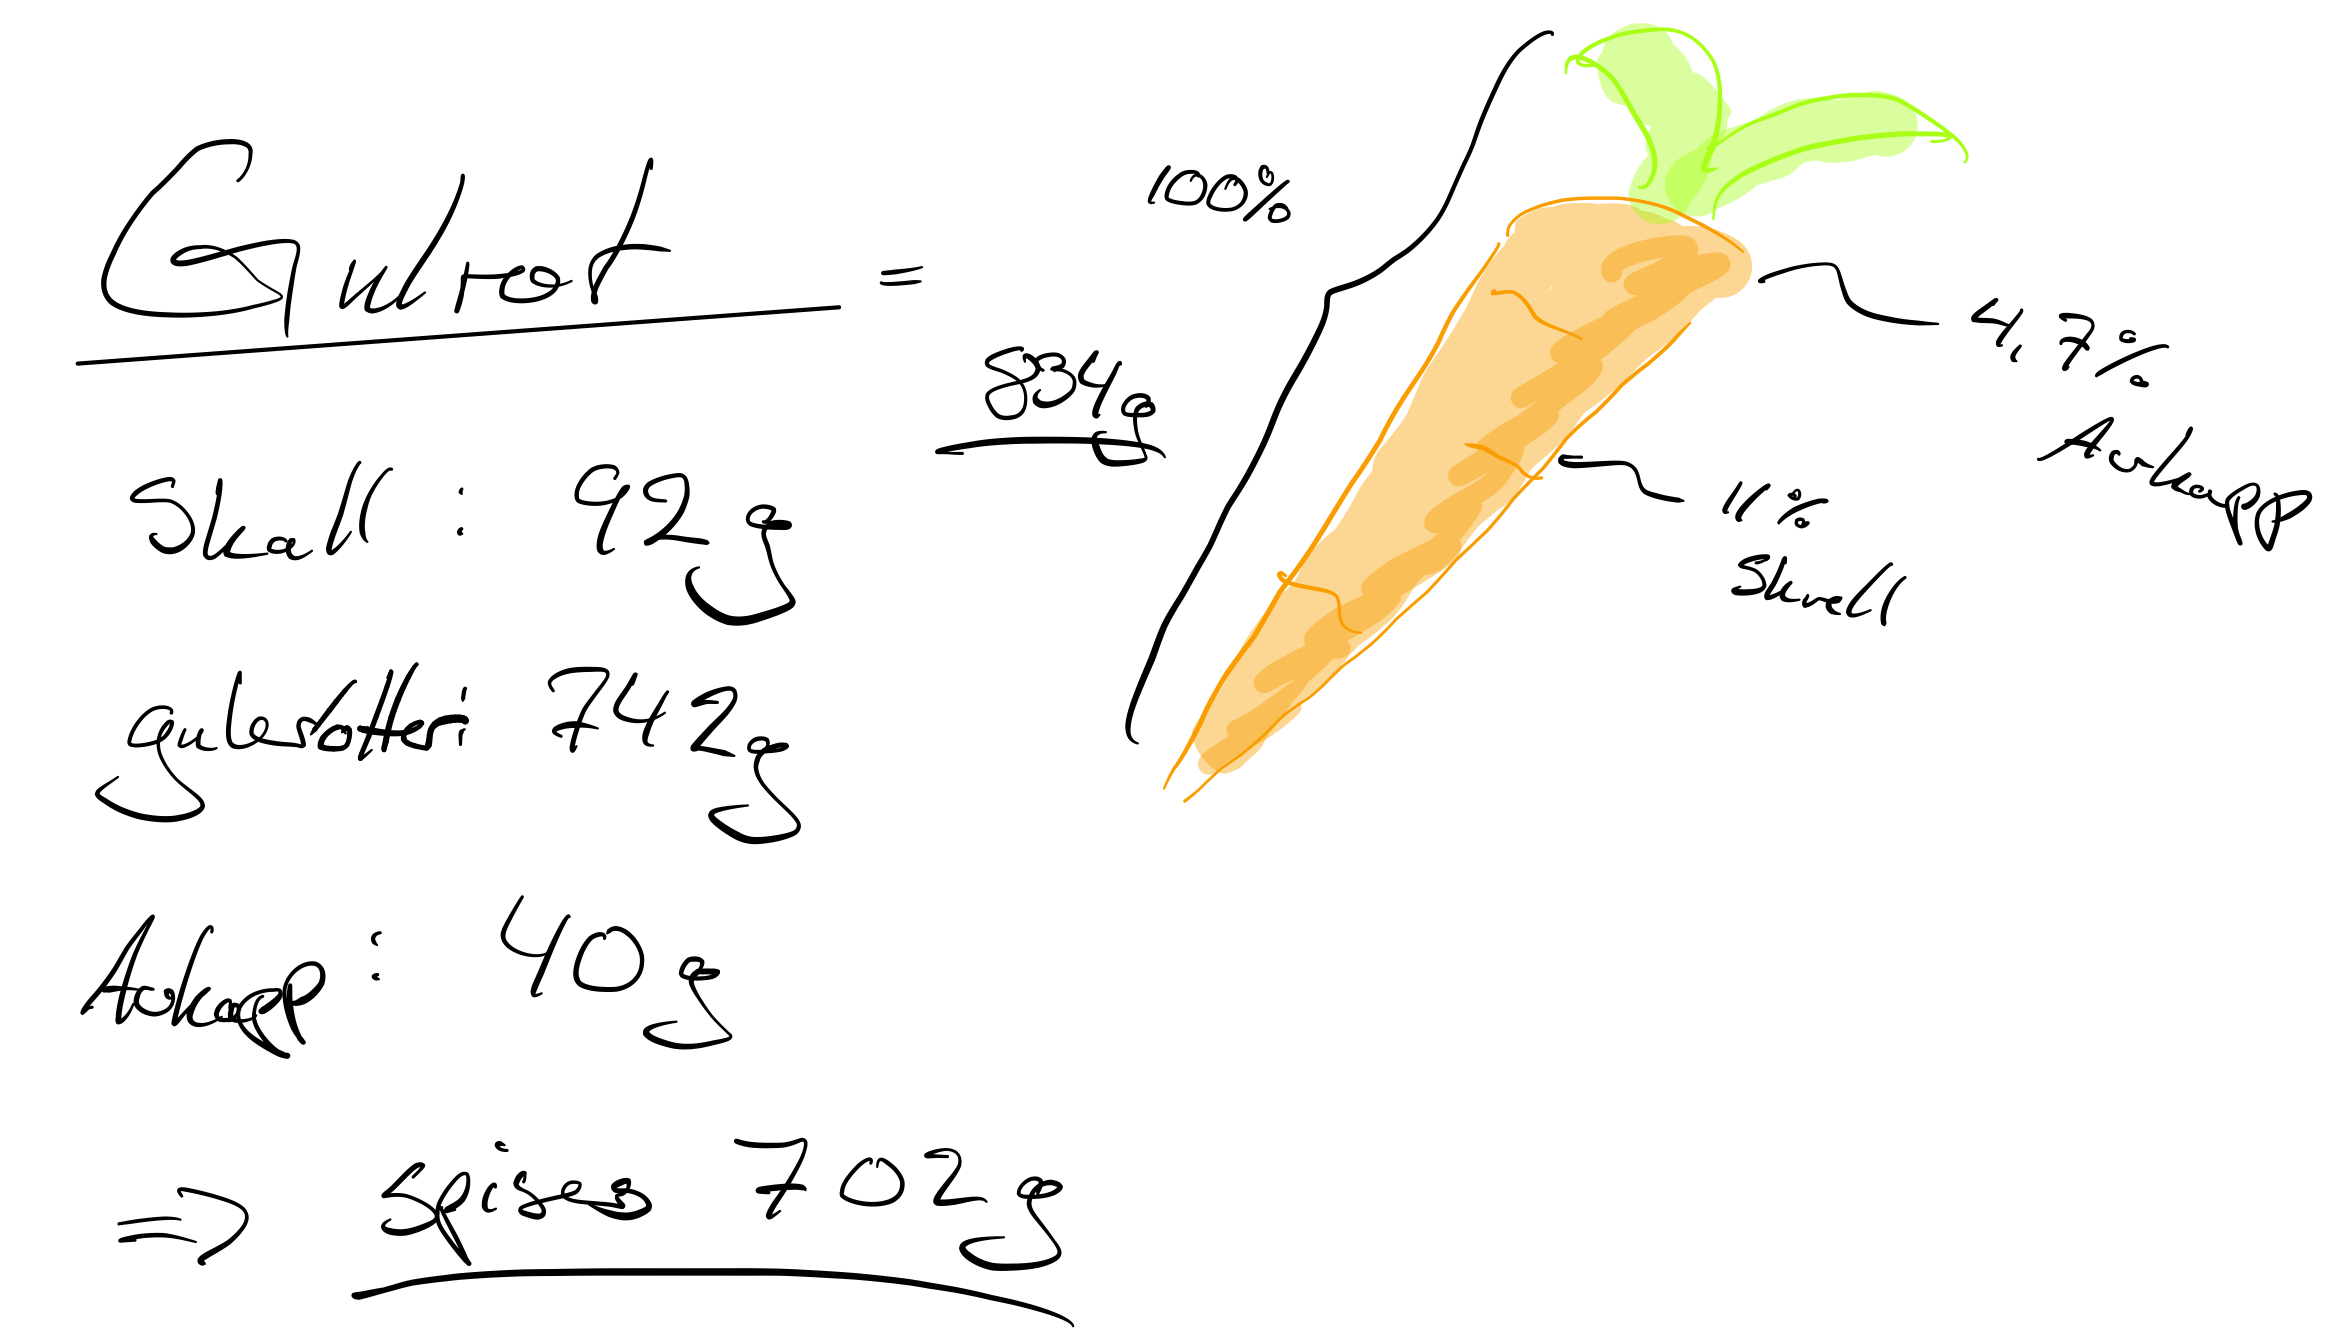 Gulrot =
834g
Skall : 92g
gulerøtter: 742g
Avkapp : 40g
⇒ spises 702g
100%
4,7%
Avkapp
11%
Skrell